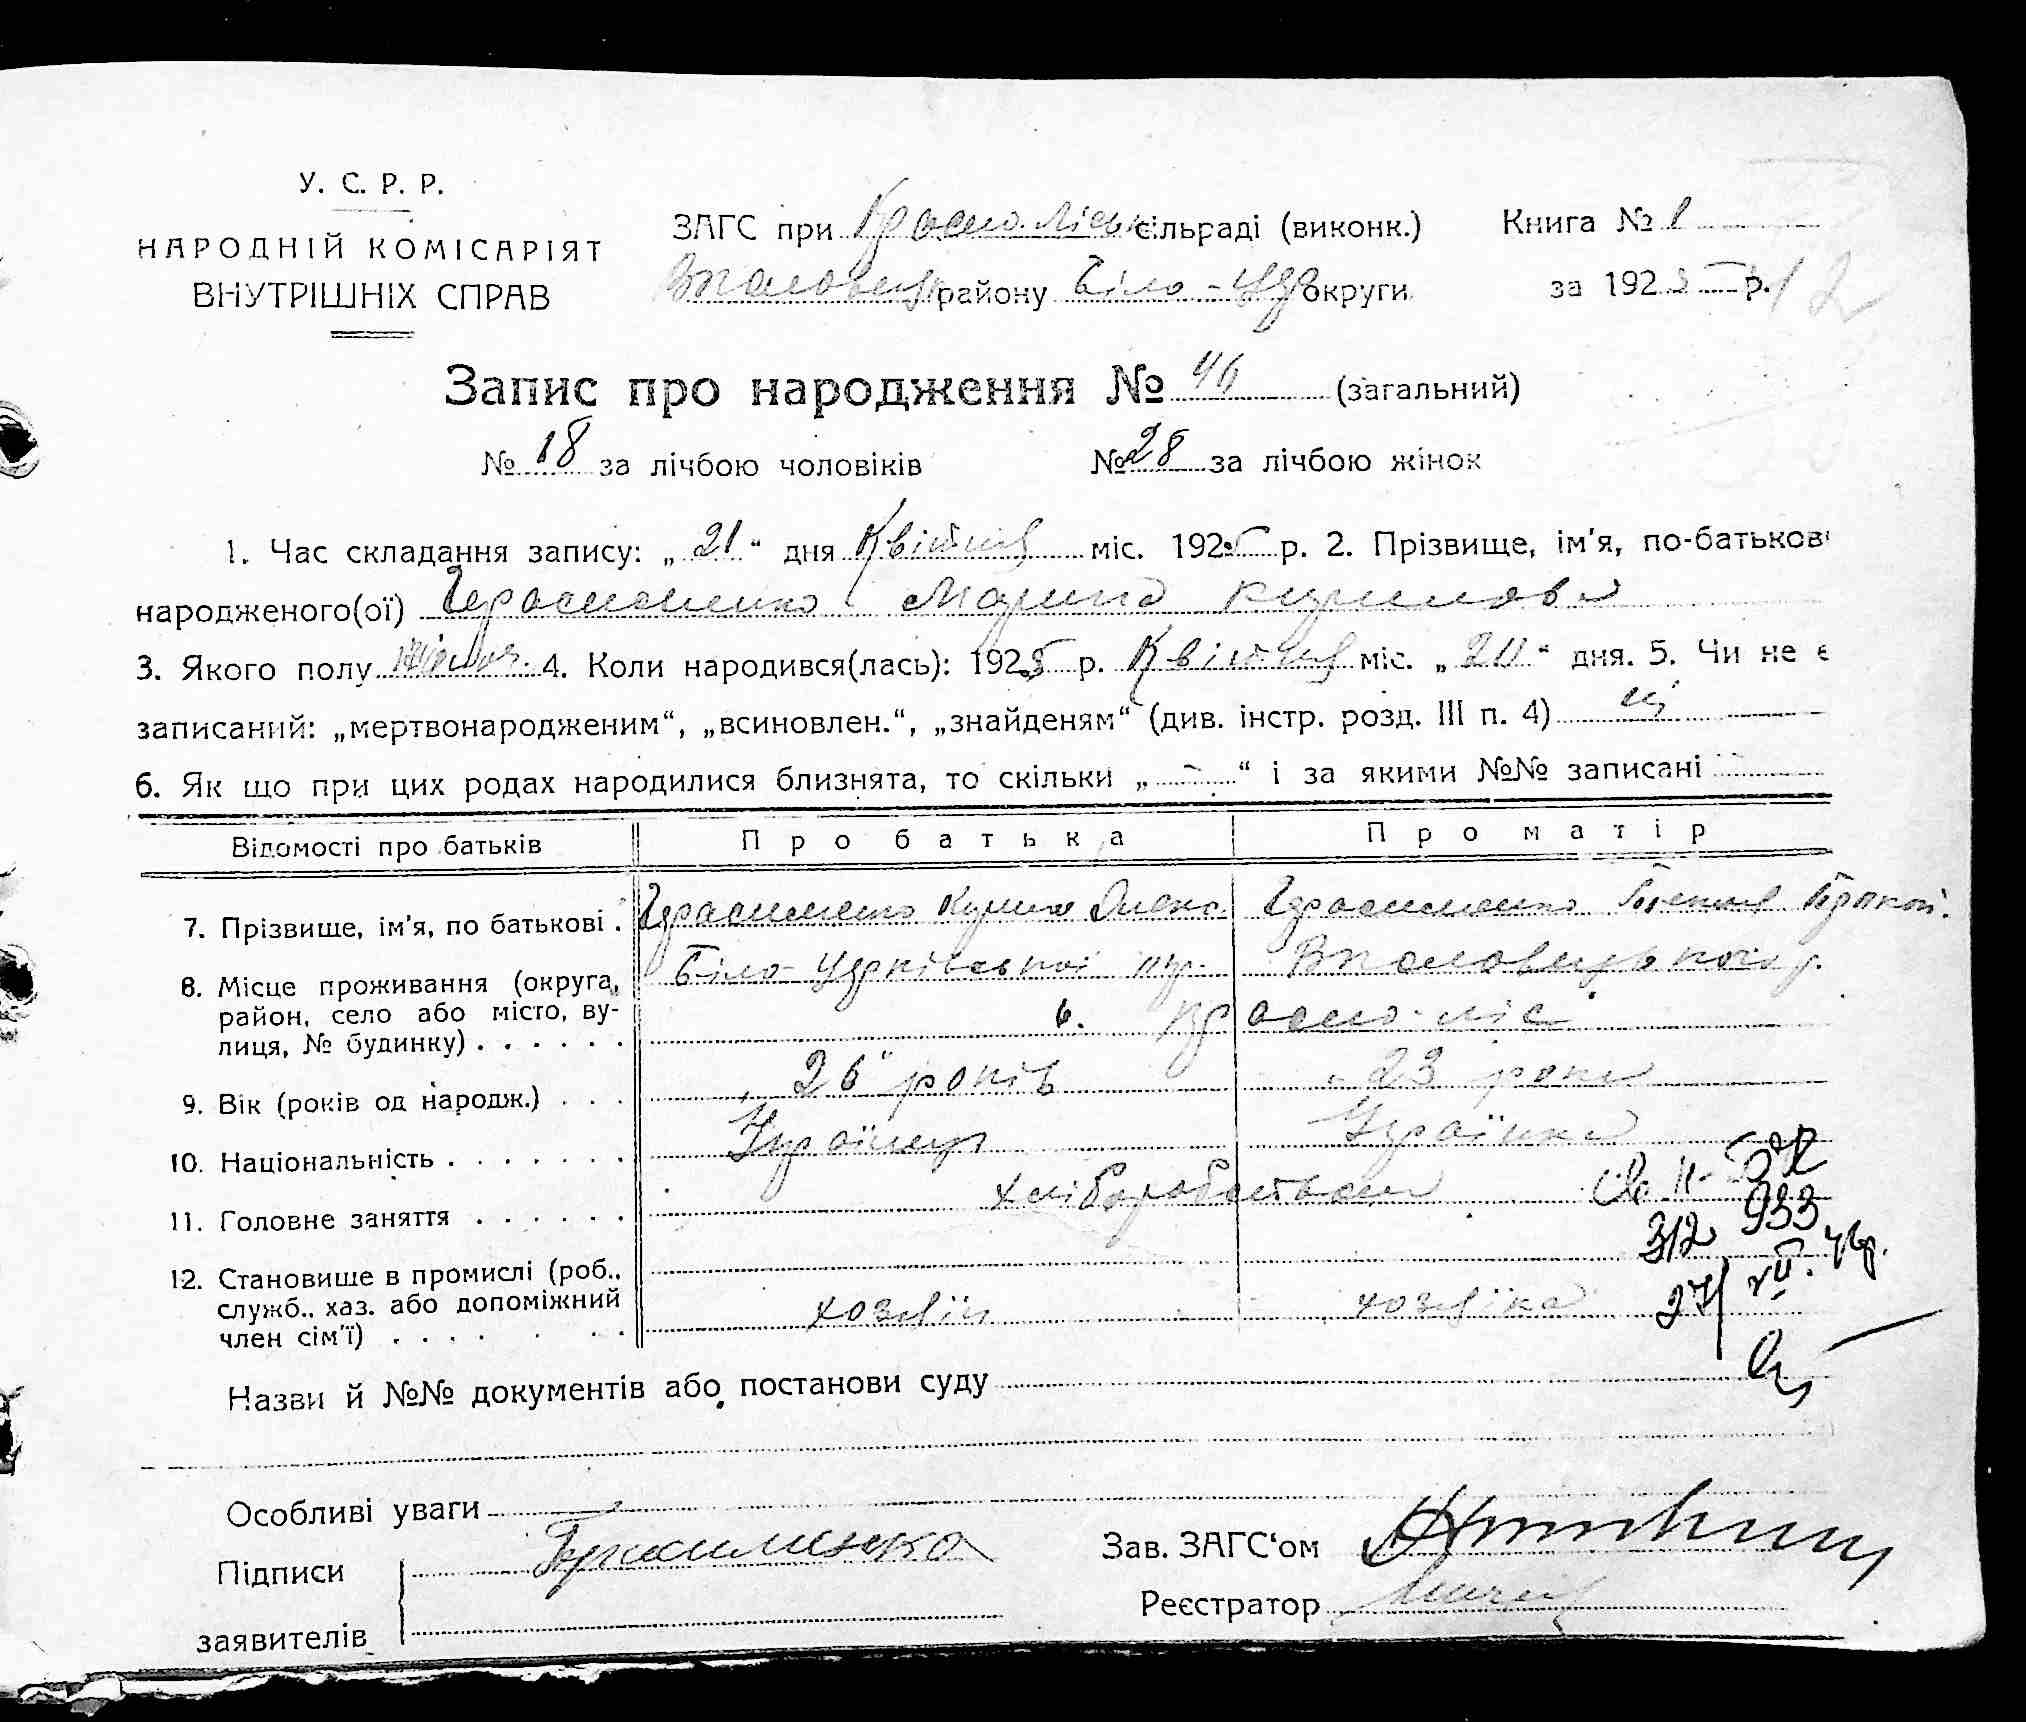 У. С. Р. Р.
НАРОДНІЙ КОМІСАРІЯТ
ВНУТРІШНІХ СПРАВ
ЗАГС при Красноліськ. сільраді (виконк.)
району Біло-Цер округи
Книга № 1
за 1925 р.
12
Запис про народження № 46 (загальний)
№ 18 за лічбою чоловіків № 28 за лічбою жінок
1. Час складання запису: „ 21 “ дня Квітня міс. 1925 р. 2. Прізвище, ім'я, по-батькові
народженого(ої) Герасименко Марина Кирилова
3. Якого полу жіноч. 4. Коли народився(лась): 1925 р. Квітня міс. „ 20 “ дня. 5. Чи не є
записаний: „мертвонародженим“, „всиновлен.“, „знайденям“ (див. інстр. розд. III п. 4) ні
6. Як що при цих родах народилися близнята, то скільки „ - “ і за якими №№ записані
Відомості про батьків Про батька Про матір
7. Прізвище, ім'я, по батькові . Герасименко Кирило Олекс. Герасименко
8. Місце проживання (округа, район, село або місто, вулиця, № будинку) . . . . . . Біло-Церківської окр.
с. Красно-ліс
9. Вік (років од народж.) . . . „26“ років „23 роки
10. Національність . . . . . . . Українец Українка
11. Головне заняття . . . . . . хліборобством
312 933
27/VII. 46р.
12. Становище в промислі (роб., служб., хаз. або допоміжний член сім'ї) . . . . . . . хозяін хозяїка
Назви й №№ документів або постанови суду
Особливі уваги
Підписи заявителів Герасименко
Зав. ЗАГС‘ом
Реєстратор